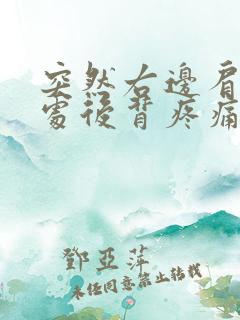 突然右邊肩
處後背疼痛
鄧亞萍
未经同意禁止转载